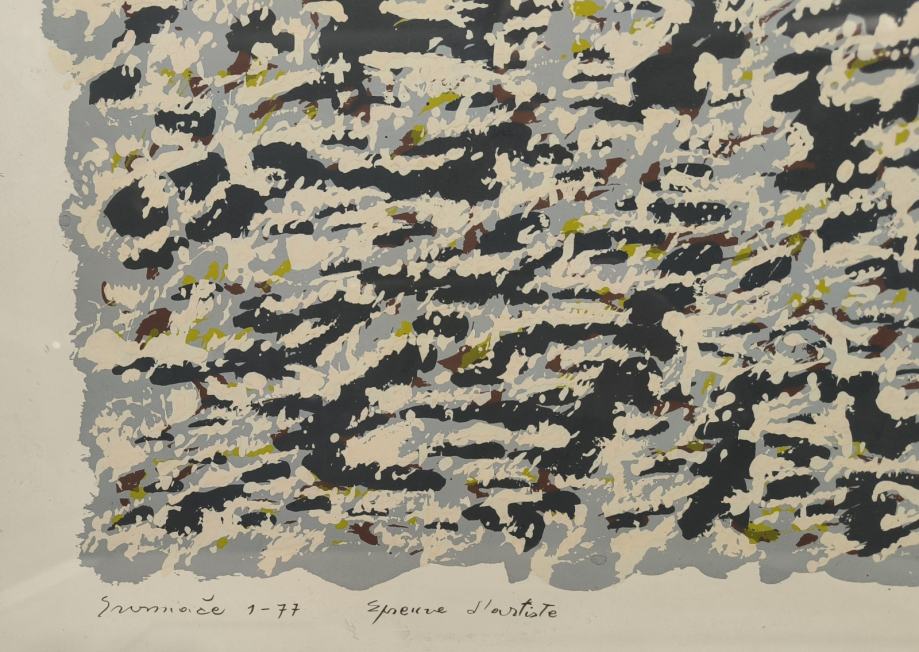 1-77 Epreuve d'artiste